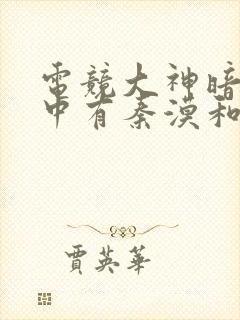 電競大神暗
中有秦漠和
賈英華